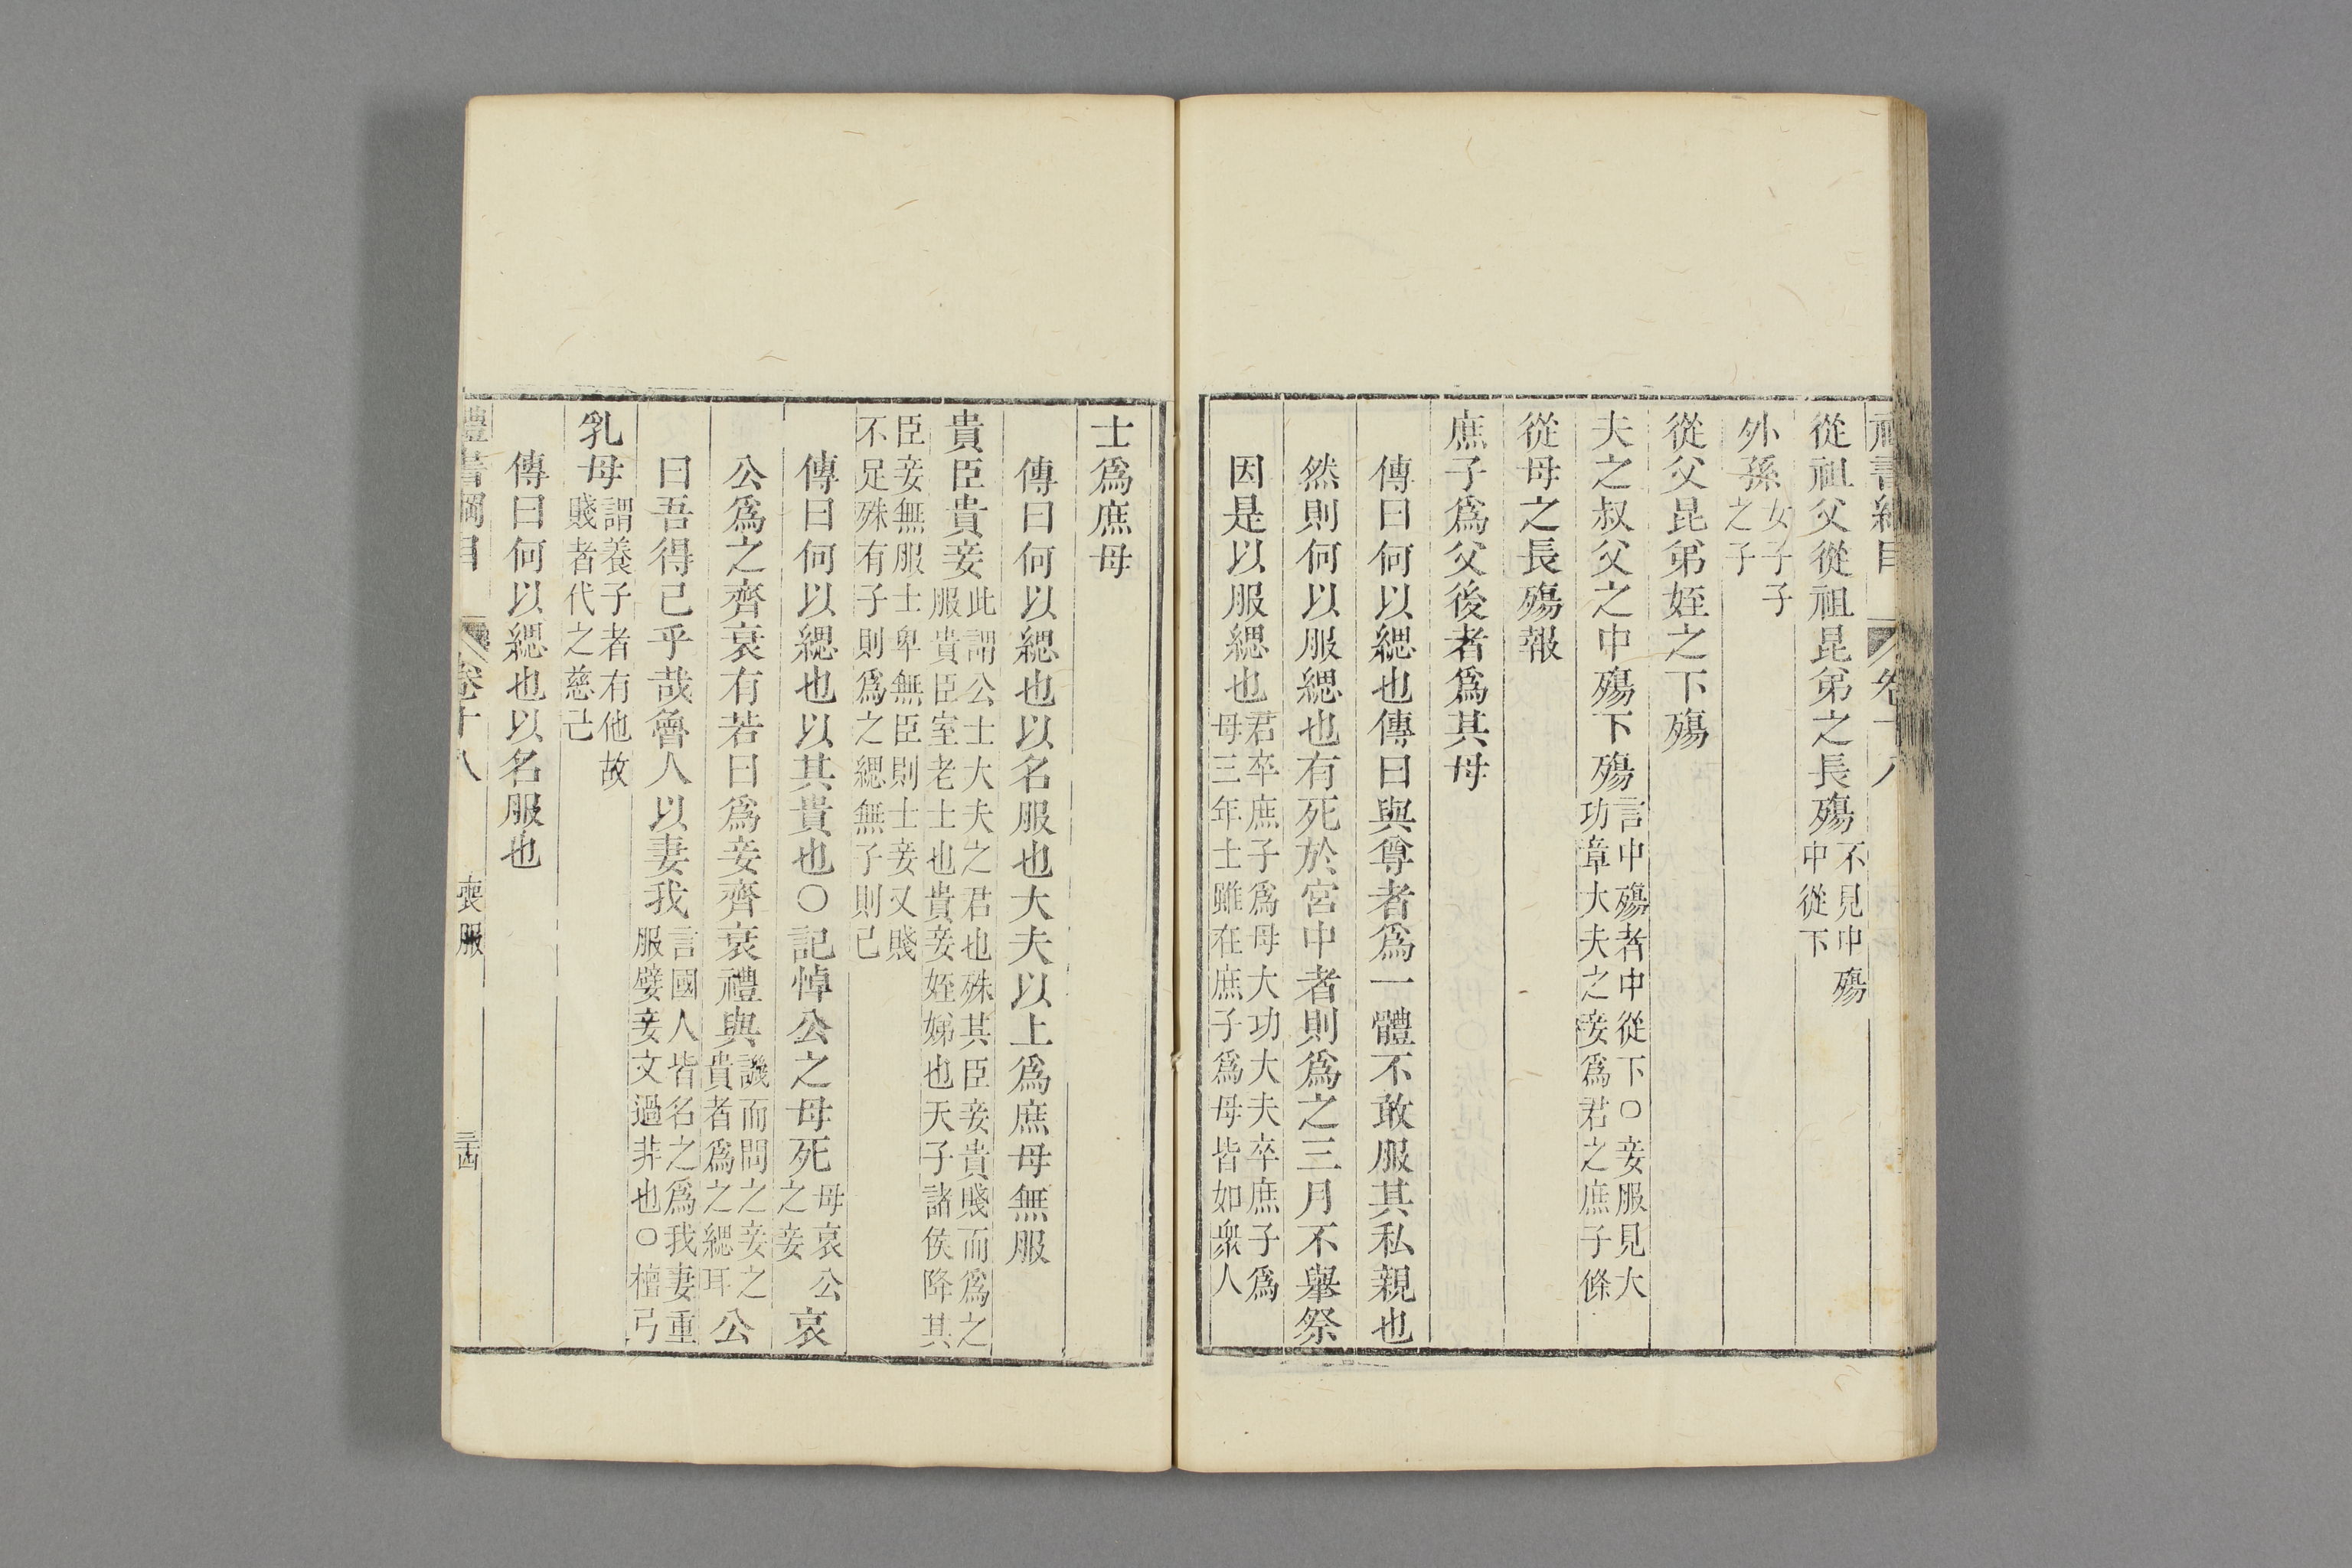 禮書綱目 卷十八
從祖父從祖昆弟之長殤不見中殤中從下
外孫女子子之子
從父昆弟姪之下殤
夫之叔父之中殤下殤言中殤者中從下○妾服見大功章大夫之妾爲君之庶子條
從母之長殤報
庶子爲父後者爲其母
傳曰何以緦也傳曰與尊者爲一體不敢服其私親也
然則何以服緦也有死於宮中者則爲之三月不舉祭
因是以服緦也君卒庶子爲母大功大夫卒庶子爲母三年士雖在庶子爲母皆如衆人
士爲庶母
傳曰何以緦也以名服也大夫以上爲庶母無服
貴臣貴妾此謂公士大夫之君也殊其臣妾貴賤而爲之服貴臣室老士也貴妾姪娣也天子諸侯降其
臣妾無服士卑無臣則士妾又賤不足殊有子則爲之緦無子則已
傳曰何以緦也以其貴也○記悼公之母死母哀公之妾哀
公爲之齊衰有若曰爲妾齊衰禮與譏而問之妾之貴者爲之緦耳公
曰吾得已乎哉魯人以妻我言國人皆名之爲我妻重服嬖妾文過非也○檀弓
乳母謂養子者有他故賤者代之慈己
傳曰何以緦也以名服也
禮書綱目 卷十八 喪服 三四